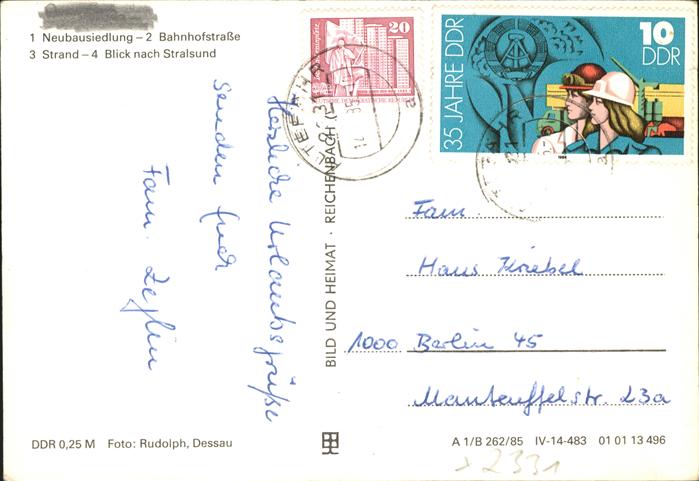 1 Neubausiedlung – 2 Bahnhofstraße
3 Strand – 4 Blick nach Stralsund
Herzliche Urlaubsgrüße
senden Euch
Fam. Zeylin
BILD UND HEIMAT · REICHENBACH (
20
35 JAHRE DDR
10
DDR
1984
ALTEFÄHR
2331
a
Fam.
Hans Kriebel
1000 Berlin 45
Manteuffelstr. 23a
DDR 0,25 M Foto: Rudolph, Dessau
A 1/B 262/85 IV-14-483 01 01 13 496
2331